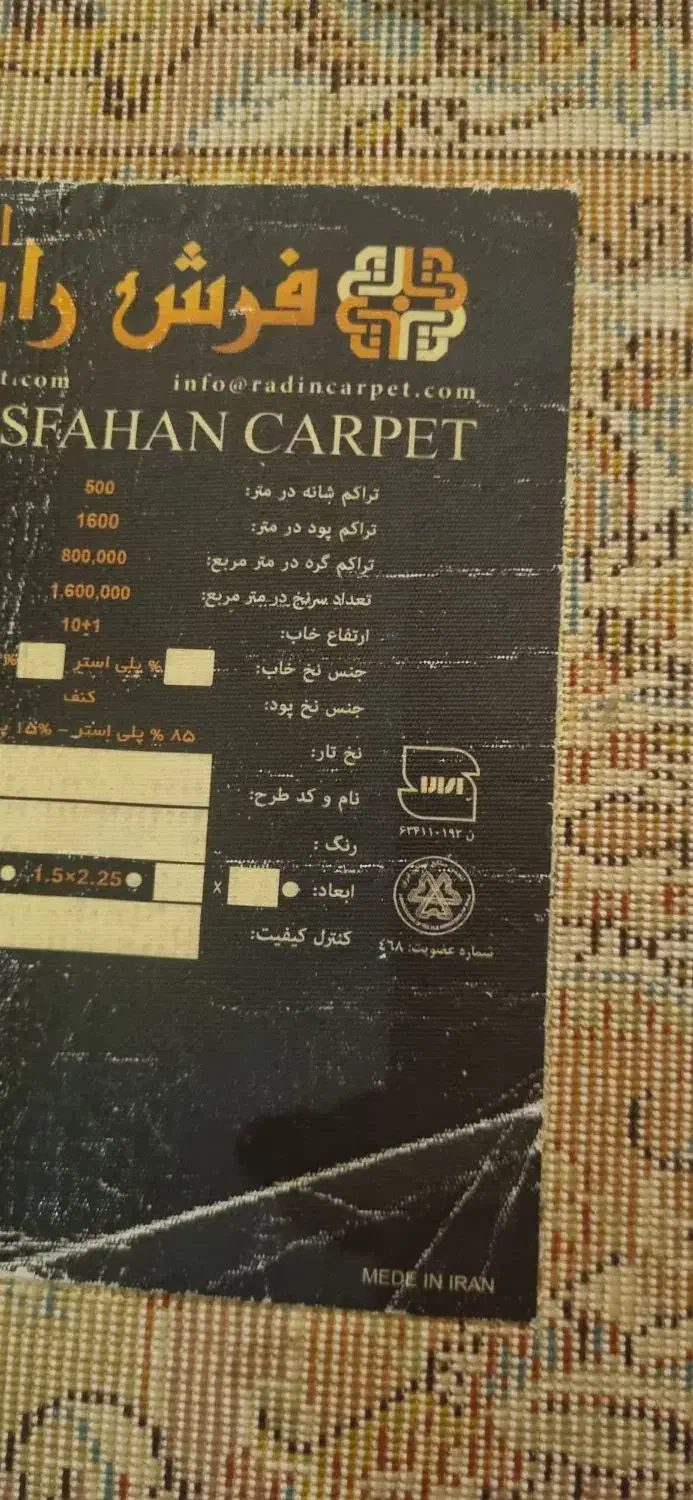 فرش
info@radincarpet.com
t.com
SFAHAN CARPET
تراکم شانه در متر: 500
تراکم پود در متر: 1600
تراکم گره در متر مربع: 800,000
تعداد سرنخ در متر مربع: 1,600,000
ارتفاع خاب: 10+1
جنس نخ خاب: % پلی استر %
جنس نخ پود: کنف
نخ تار: ۸۵ % پلی استر - ۱۵%
نام و کد طرح:
رنگ :
ابعاد: x 1.5×2.25
کنترل کیفیت:
شماره عضویت: ٤٦٨
MEDE IN IRAN